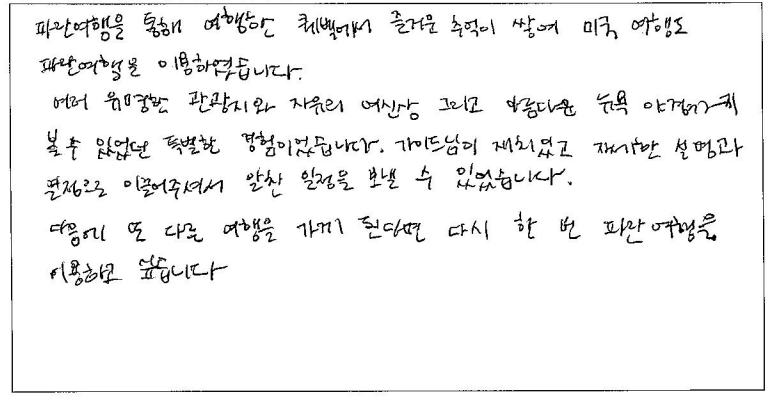 파란여행을 통해 여행한 퀘벡에서 즐거운 추억이 쌓여 미국 여행도
파란여행을 이용하였습니다.
여러 유명한 관광지와 자유의 여신상 그리고 아름다운 뉴욕 야경까지
볼 수 있었던 특별한 경험이었습니다. 가이드님의 재치있고 자세한 설명과
열정으로 이끌어주셔서 알찬 일정을 보낼 수 있었습니다.
다음에 또 다른 여행을 가게 된다면 다시 한 번 파란여행을
이용하고 싶습니다